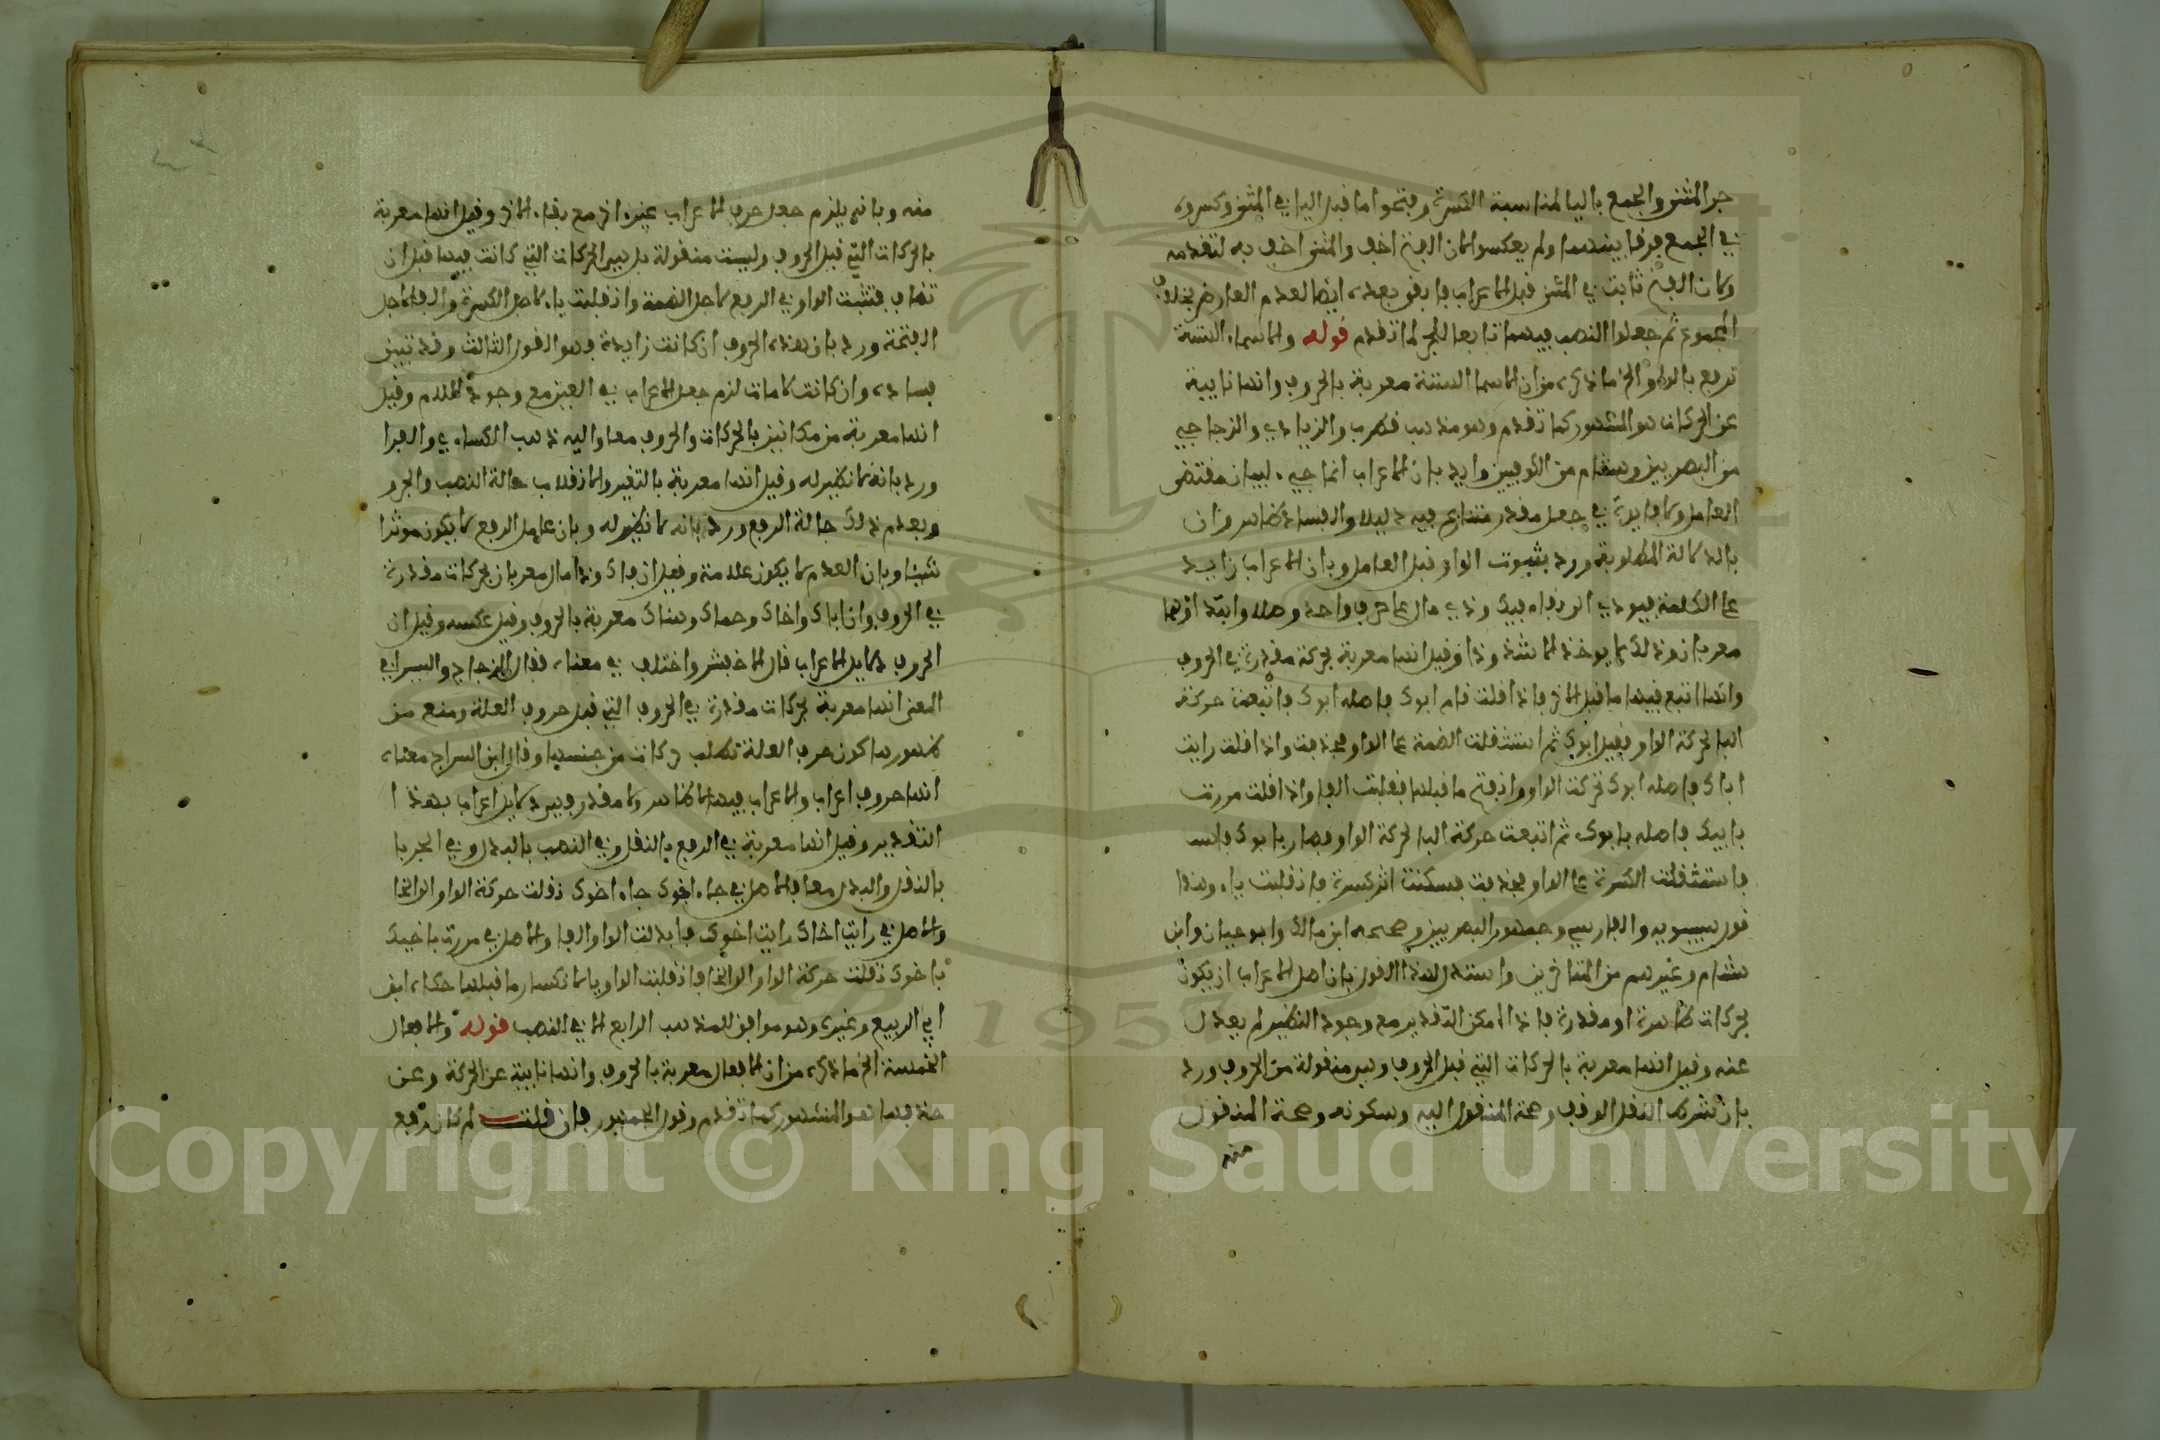 جر المثنى والجمع باليا لمناسبة الكسرة وفتحوا ما قبل اليا في المثنى وكسروه
في الجمع فرقا بينهما ولم يعكسوا لان الفتح اخف والمثنى اخف به لتقدمه
ولان الفتح ثابت في المثنى قبل الاعراب فابقوا بعده ايضا لعدم العارض بخلاف
المجموع ثم جعلوا النصب فيهما تابعا للجر لما تقدم قوله والاسماء الستة
ترفع بالواو الخ ما ذكره من ان الاسما الستة معربة بالحروف وانها نايبة
عن الحركات هو المشهور كما تقدم وهو مذهب قطرب والزيادي والزجاجي
من البصريين وهشام من الكوفيين وايد بان الاعراب انما جيء لبيان مقتضى
العامل ولا فايدة في جعل مقدر متنازع فيه دليلا والفساد ظاهر وان
بالدلالة المطلوبة ورد بثبوت الواو قبل العامل وبان الاعراب زايد
على الكلمة فيودي الى بقاء فيك وذي مال على حرف واحد وصلا وابتدا وهما
معربان وذلك لا يوخذ الا شذوذا وقيل انها معربة بحركة مقدرة في الحروف
وانها اتبع فيها ما قبل الاخر فاذا قلت قام ابوك فاصله ابوك فاتبعت حركة
البا لحركة الواو فقيل ابوك ثم استثقلت الضمة على الواو فحذفت واذا قلت رايت
اباك فاصله ابوك تحركت الواو وانفتح ما قبلها فقلبت الفا واذا قلت مررت
بابيك فاصله بابوك ثم اتبعت حركة البا لحركة الواو فصار بابوك
فاستثقلت الكسرة على الواو فحذفت فسكنت اثر كسرة فانقلبت ياء وهذا
قول سيبويه والفارسي وجمهور البصريين وصححه ابن مالك وابو حيان وابن
هشام وغيرهم من المتاخرين واستدل لهذا القول بان اصل الاعراب ان يكون
بحركات ظاهرة او مقدرة فاذا امكن التقدير مع وجود النظير لم يعدل
عنه وقيل انها معربة بالحركات التي قبل الحروف وهي منقولة من الحروف ورد
بان شرط النقل الوقف وصحة المنقول اليه وسكونه وصحة المنقول
منه
منه وبانه يلزم جعل حرف الاعراب غير اخر مع بقاء الاخر وقيل انها معربة
بالحركات التي قبل الحروف وليست منقولة بل هي الحركات التي كانت فيها قبل ان
تضاف فتثبت الواو في الرفع لاجل الضمة وانقلبت ياء لاجل الكسرة والفا لاجل
الفتحة ورد بان هذه الحروف ان كانت زايدة فهو القول الثالث وقد تبين
فساده وان كانت لامات لزم جعل الاعراب في العين مع وجود اللام وقيل
انها معربة من مكانين بالحركات والحروف معا واليه ذهب الكساءي والفرا
ورد بانه لا نظير له وقيل انها معربة بالتغير والانقلاب حالة النصب والجر
وبعدم ذلك حالة الرفع ورد بانه لا نظير له وبان عامل الرفع لا يكون موثرا
شيئا وبان العدم لا يكون علامة وقيل ان فاك وذا مال معربان بحركات مقدرة
في الحروف وان اباك واخاك وحماك وهناك معربة بالحروف وقيل عكسه وقيل ان
الحروف دلايل الاعراب قال الاخفش واختلف في معناه فقال الزجاج والسيرافي
المعنى انها معربة بحركات مقدرة في الحروف التي قبل حروف العلة ومنع من
ظهورها كون حرف العلة تطلب حركات من جنسها وقال ابن السراج معناه
انها حروف اعراب والاعراب فيها لا ظاهر ولا مقدر فهي دلايل اعراب بهذا
التقدير وقيل انها معربة في الرفع بالنقل وفي النصب بالبدل وفي الجر
بالنقل والبدل معا فالاصل في جاء اخوك جاء اخوك نقلت حركة الواو الى الخا
والاصل في رايت اخاك رايت اخوك فابدلت الواو الفا والاصل في مررت باخيك
باخوك نقلت حركة الواو الى الخا فانقلبت الواو يا لانكسار ما قبلها حكاه ابن
ابي الربيع وغيره وهو موافق للمذهب الرابع الا في النصب قوله والافعال
الخمسة الخ ما ذكره من ان الافعال معربة بالحروف وانها نايبة عن الحركة وعن
حذفها هو المشهور كما تقدم وقول الجمهور فان قلت لم كان رفع
1957
Copyright © King Saud University